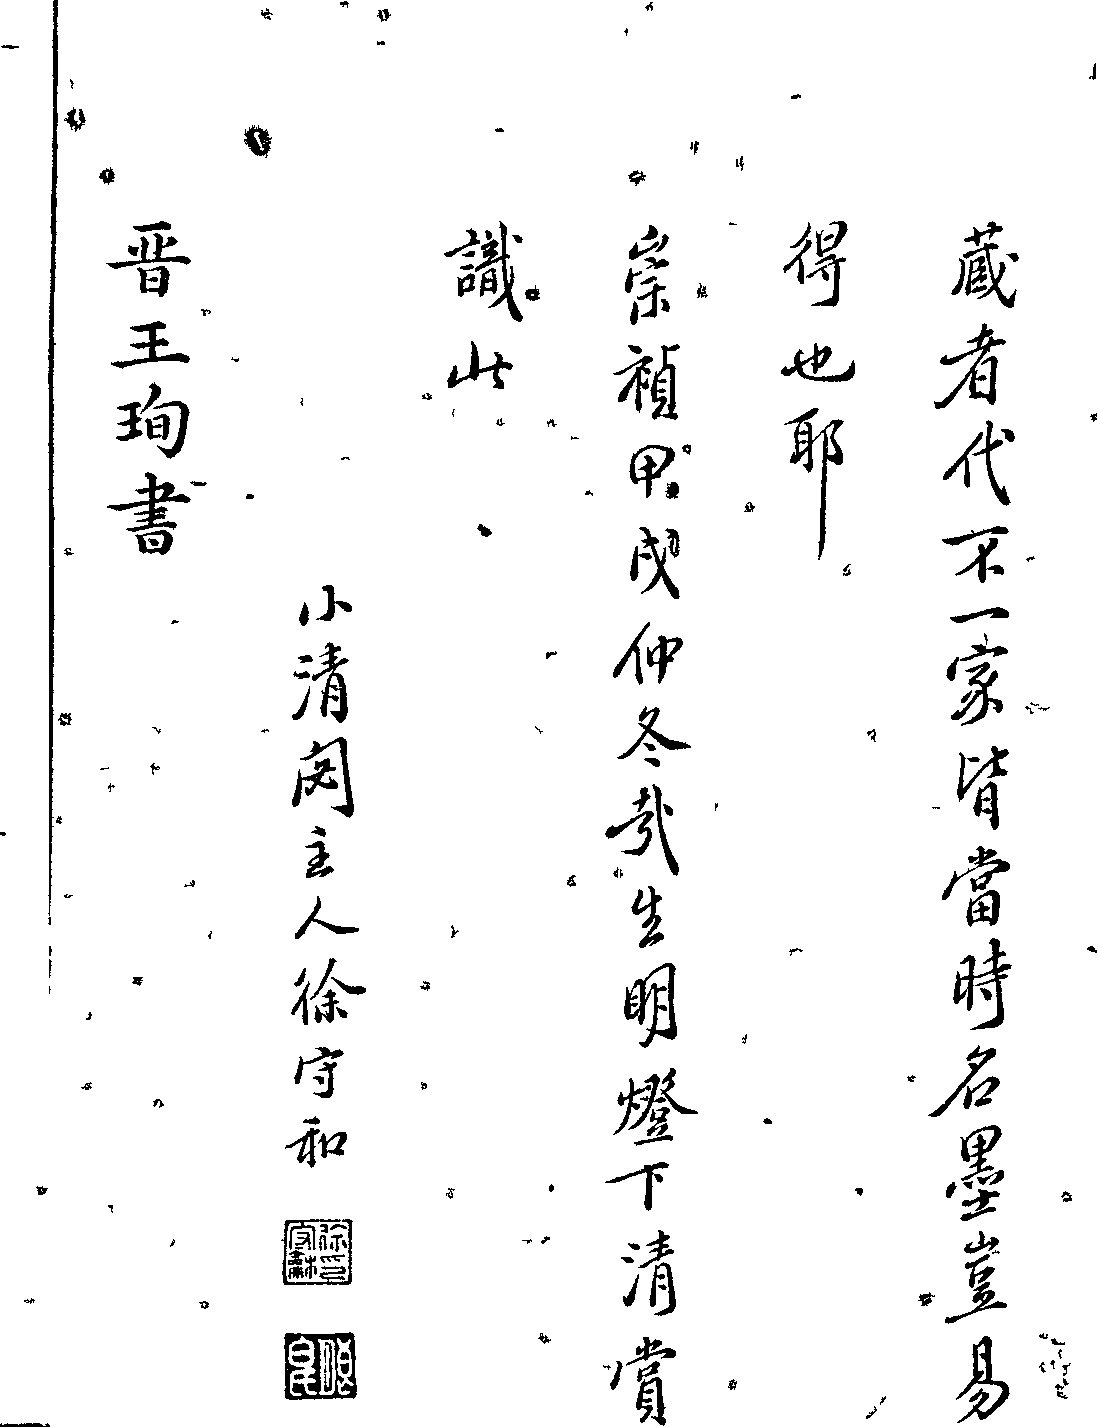 蔵者代不一家皆當時名墨豈易
得也耶
崇禎甲戌仲冬哉生明燈下清賞
識此
小清閟主人徐守和
晋王珣書